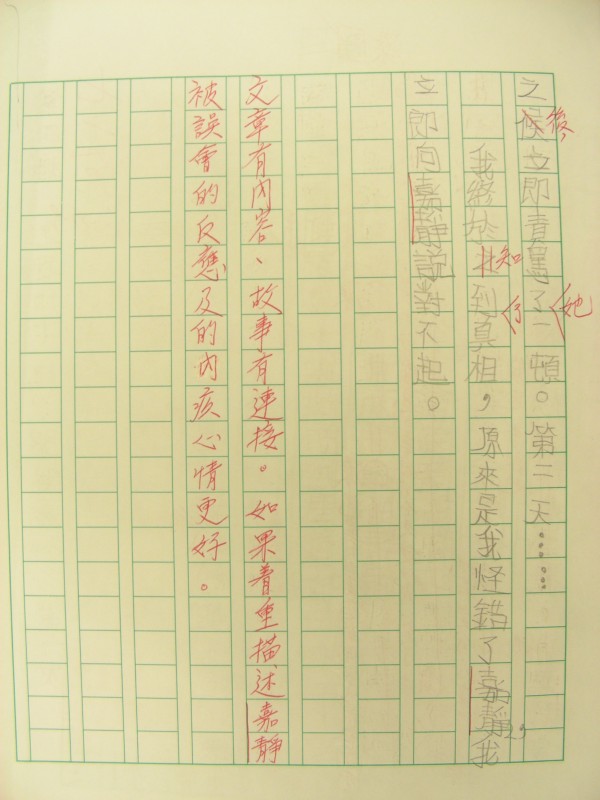 之候立即責罵了一頓。第二天……
後
她
我終於知到真相,原來是我怪錯了嘉靜我
了
立即向嘉靜說對不起。
文章有內容、故事有連接。如果着重描述嘉靜
被誤會的反應及的內疚心情更好。